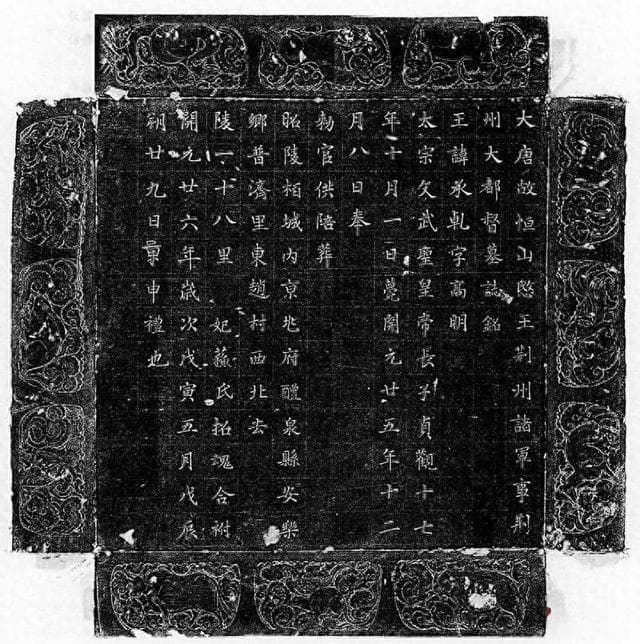 大唐故恒山愍王荊州諸軍事荊
州大都督墓誌銘
王諱承乹字高明
太宗文武聖皇帝長子貞觀十七
年十月一日薨開元廿五年十二
月八日奉
勑官供陪葬
昭陵栢城內京兆府醴泉縣安樂
鄉普濟里東趙村西北去
陵一十八里 妃蘇氏招魂合祔
開元廿六年歲次戊寅五月戊辰
朔廿九日景申禮也